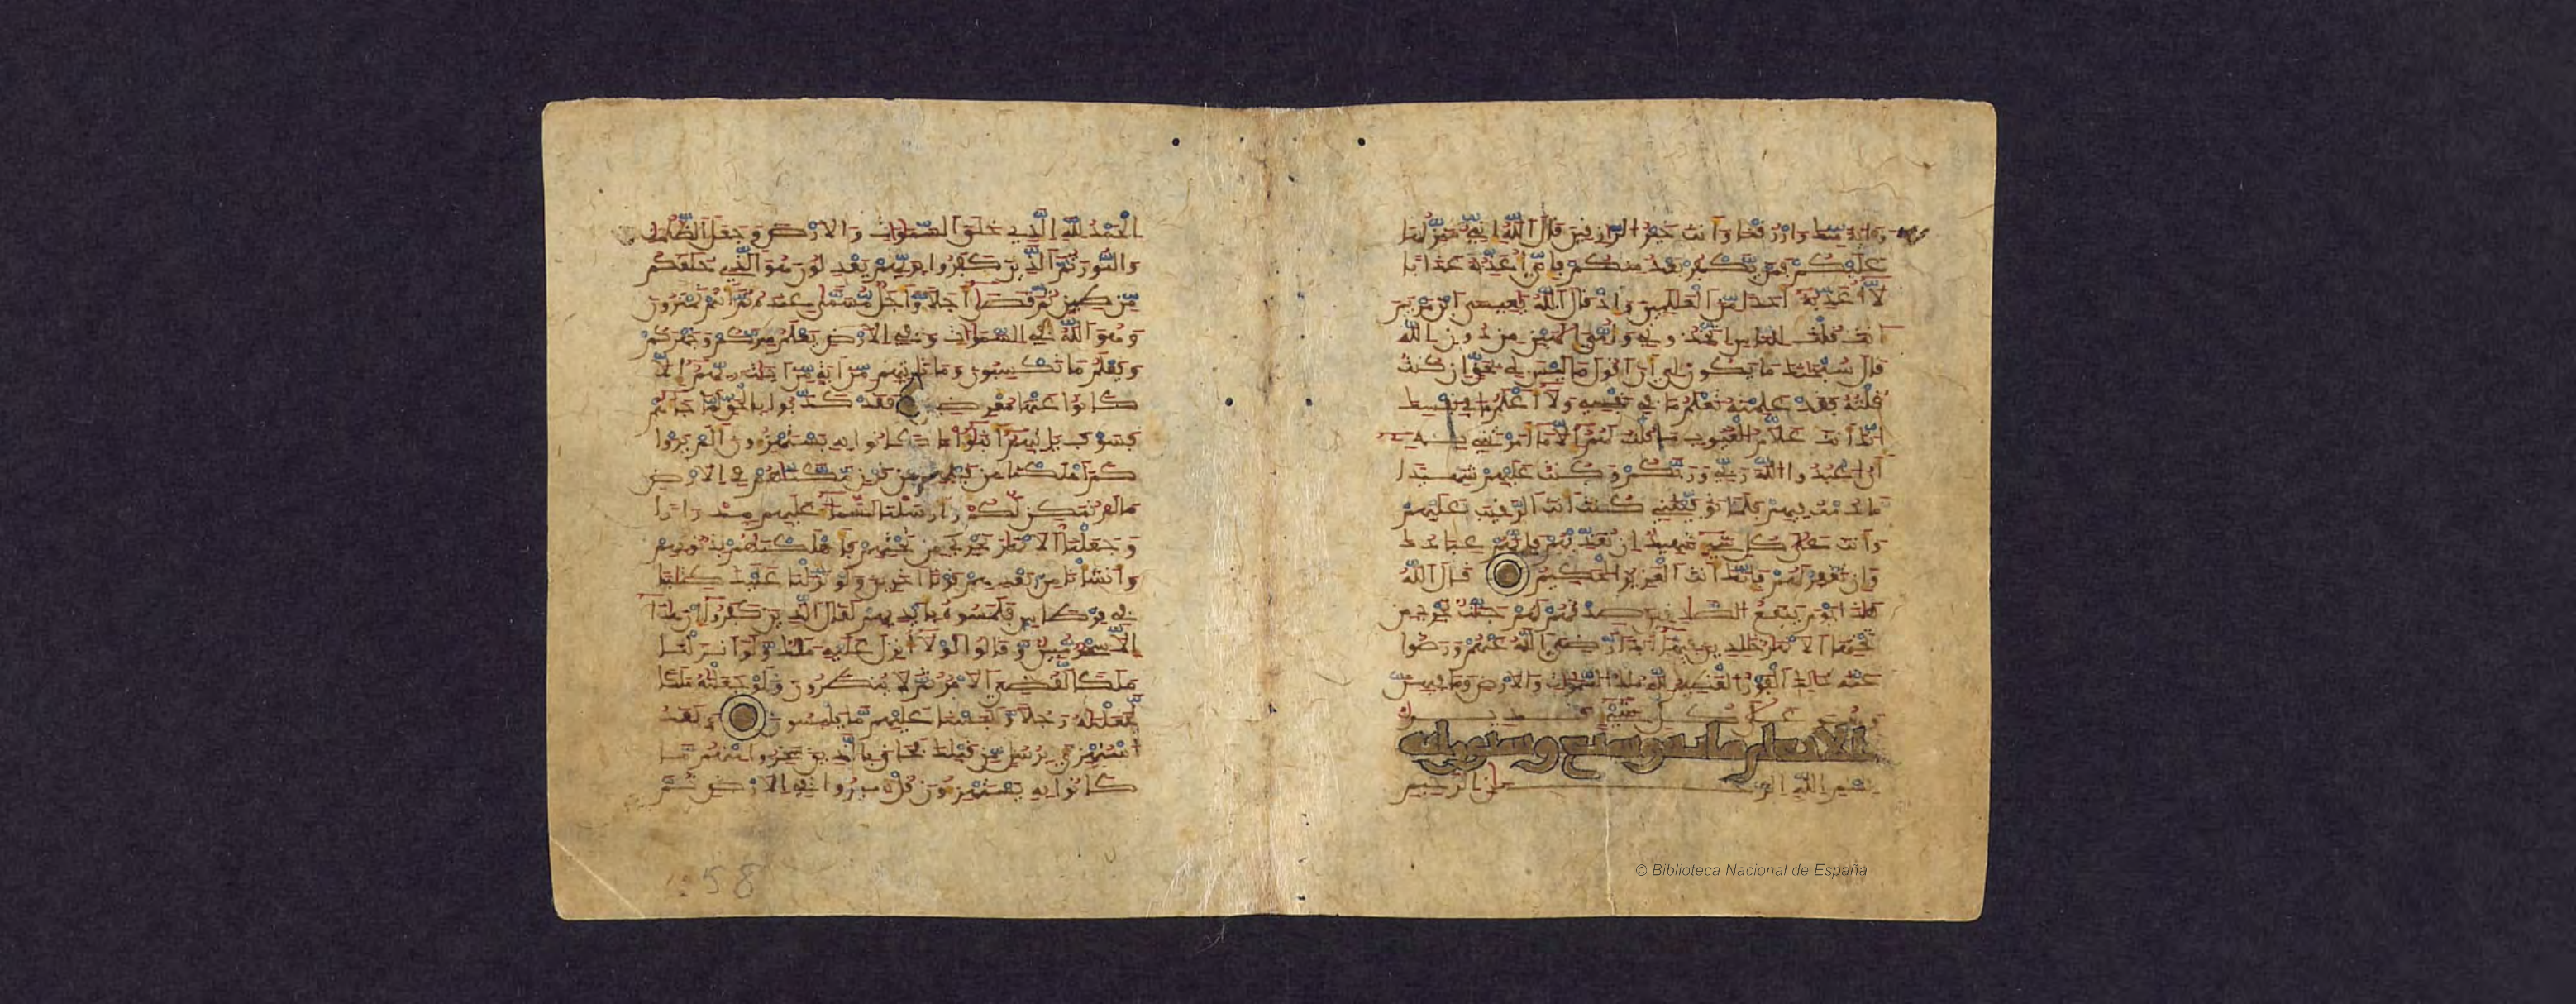 وءاية منك وارزقنا وأنت خير الرزقين قال الله إني منزلها
عليكم فمن يكفر بعد منكم فإني أعذبه عذابا
لا أعذبه أحدا من العلمين وإذ قال الله يعيسى ابن مريم
ءأنت قلت للناس اتخذوني وأمي إلهين من دون الله
قال سبحنك ما يكون لي أن أقول ما ليس لي بحق إن كنت
قلته فقد علمته تعلم ما في نفسي ولا أعلم ما في نفسك
إنك أنت علم الغيوب ما قلت لهم إلا ما أمرتني به
أن اعبدوا الله ربي وربكم وكنت عليهم شهيدا
ما دمت فيهم فلما توفيتني كنت أنت الرقيب عليهم
وأنت على كل شيء شهيد إن تعذبهم فإنهم عبادك
وإن تغفر لهم فإنك أنت العزيز الحكيم قال الله
هذا يوم ينفع الصدقين صدقهم لهم جنت تجري من
تحتها الأنهر خلدين فيها أبدا رضي الله عنهم ورضوا
عنه ذلك الفوز العظيم لله ملك السموت والأرض وما فيهن
وهو على كل شيء قدير
الأنعام مائة وسبع وستون آية
بسم الله الرحمن الرحيم
الحمد لله الذي خلق السموت والأرض وجعل الظلمت
والنور ثم الذين كفروا بربهم يعدلون هو الذي خلقكم
من طين ثم قضى أجلا وأجل مسمى عنده ثم أنتم تمترون
وهو الله في السموت وفي الأرض يعلم سركم وجهركم
ويعلم ما تكسبون وما تأتيهم من ءاية من ءايت ربهم إلا
كانوا عنها معرضين فقد كذبوا بالحق لما جاءهم
فسوف يأتيهم أنبؤا ما كانوا به يستهزءون ألم يروا
كم أهلكنا من قبلهم من قرن مكنهم في الأرض
ما لم نمكن لكم وأرسلنا السماء عليهم مدرارا
وجعلنا الأنهر تجري من تحتهم فأهلكنهم بذنوبهم
وأنشأنا من بعدهم قرنا ءاخرين ولو نزلنا عليك كتبا
في قرطاس فلمسوه بأيديهم لقال الذين كفروا إن هذا
إلا سحر مبين وقالوا لولا أنزل عليه ملك ولو أنزلنا
ملكا لقضي الأمر ثم لا ينظرون ولو جعلنه ملكا
لجعلنه رجلا وللبسنا عليهم ما يلبسون ولقد
استهزئ برسل من قبلك فحاق بالذين سخروا منهم ما
كانوا به يستهزءون قل سيروا في الأرض ثم
58
© Biblioteca Nacional de España